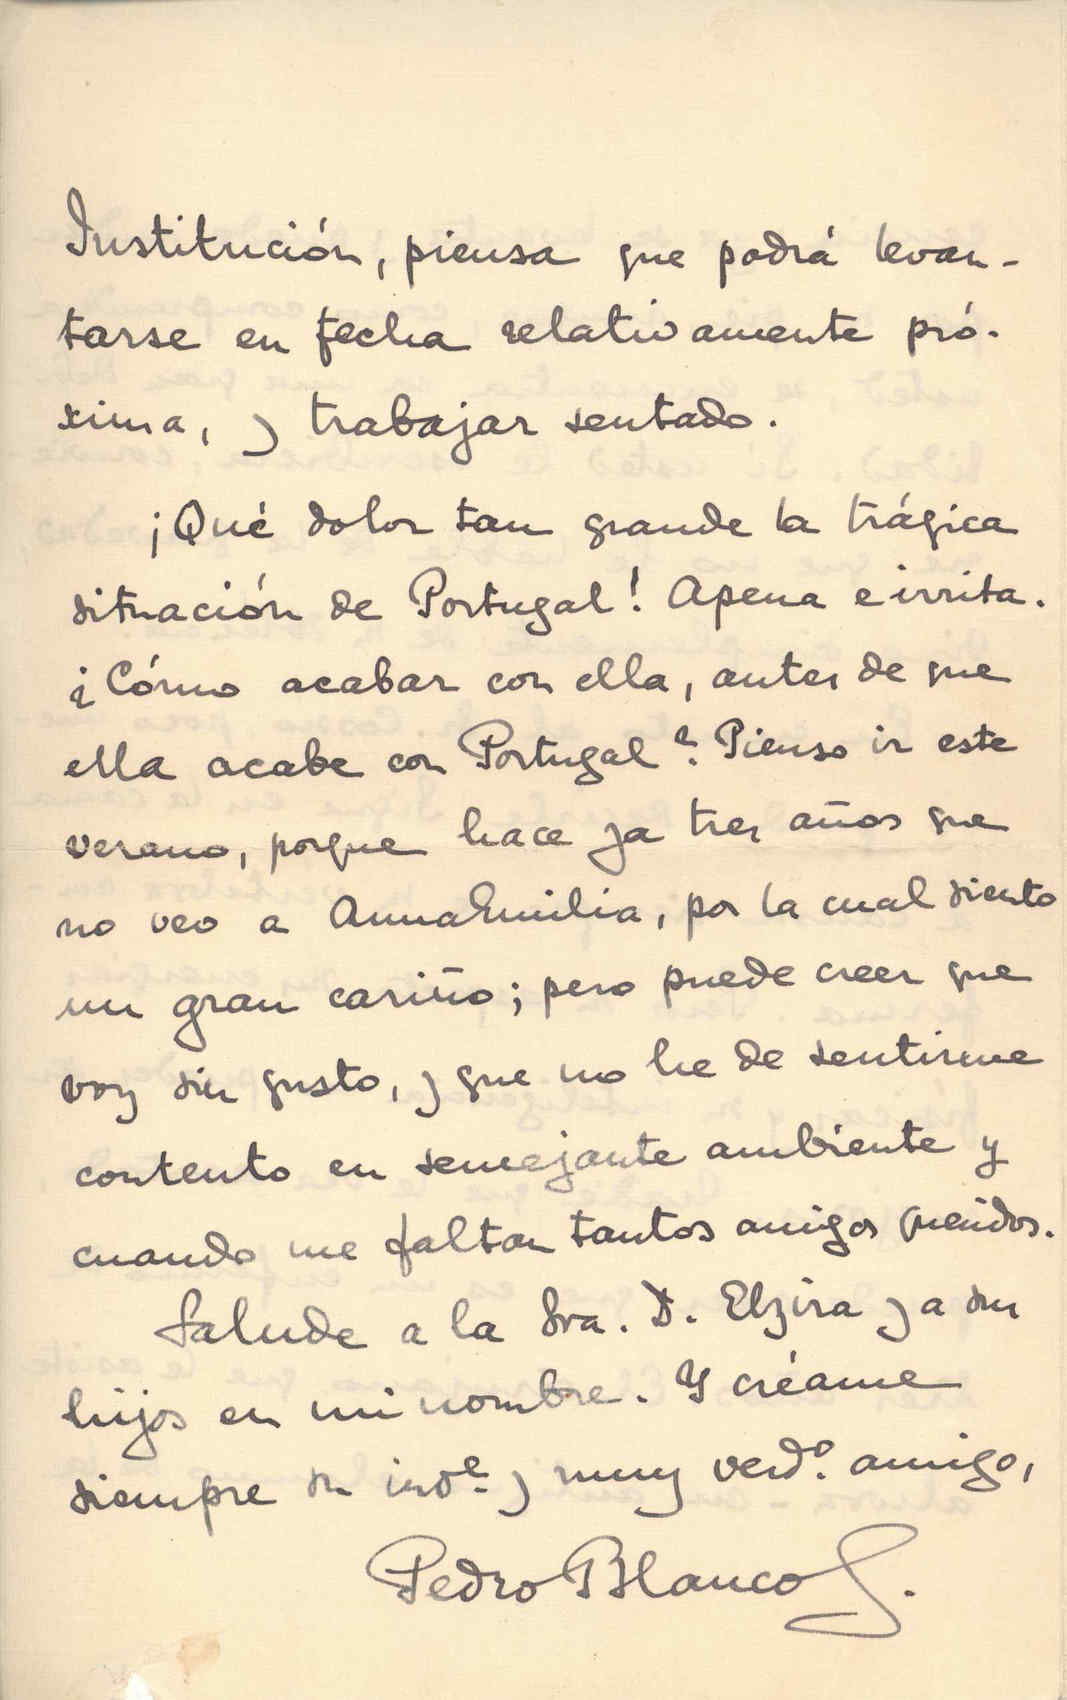 Institución, piensa que podrá levan-
tarse en fecha relativamente pró-
xima, y trabajar sentado.
¡Qué dolor tan grande la trágica
situación de Portugal! Apena e irrita.
¿Cómo acabar con ella, antes de que
ella acabe con Portugal? Pienso ir este
verano, porque hace ya tres años que
no veo a AnnaEmilia, por la cual siento
un gran cariño; pero puede creer que
voy sin gusto, y que no he de sentirme
contento en semejante ambiente y
cuando me faltan tantos amigos queridos.
Salude a la Sra. D. Elzira y a sus
hijos en mi nombre. Y créame
siempre su inv.e y muy verd.o amigo,
Pedro Blanco S.